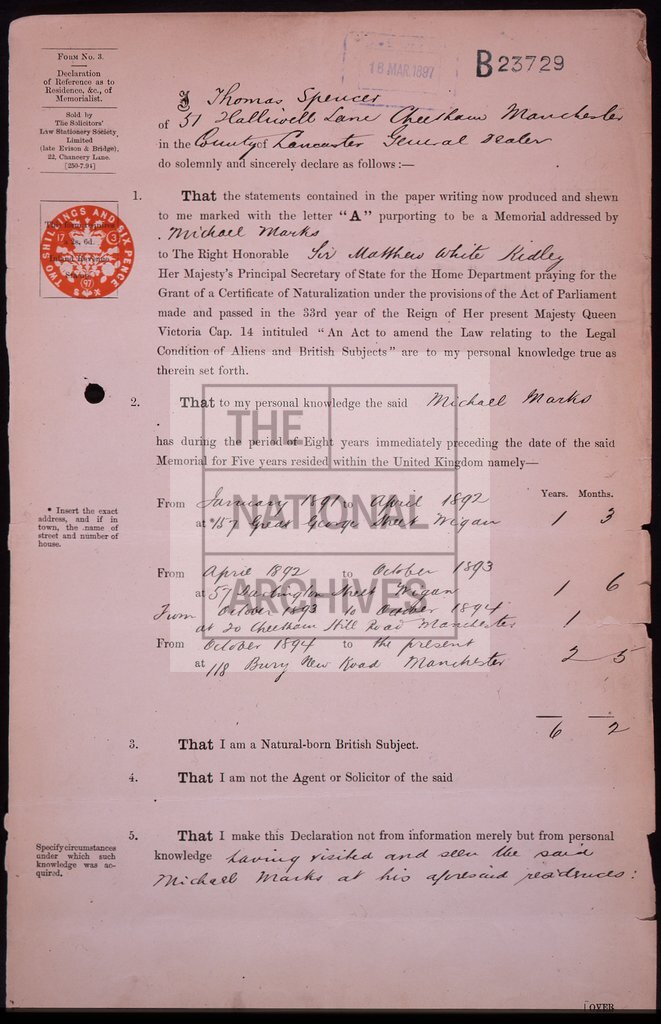 FORM No. 3.
Declaration
of Reference as to
Residence, &c., of
Memorialist.
Sold by
The Solicitors'
Law Stationery Society,
Limited
(late Evison & Bridge),
22, Chancery Lane.
[250-7.94]
18 MAR 1897
B23729
I Thomas Spencer
of 51 Halliwell Lane Cheetham Manchester
in the County of Lancaster General Dealer
do solemnly and sincerely declare as follows :—
TWO SHILLINGS AND SIX PENCE
97
1. That the statements contained in the paper writing now produced and shewn
to me marked with the letter "A" purporting to be a Memorial addressed by
Michael Marks
to The Right Honorable Sir Matthew White Ridley
Her Majesty's Principal Secretary of State for the Home Department praying for the
Grant of a Certificate of Naturalization under the provisions of the Act of Parliament
made and passed in the 33rd year of the Reign of Her present Majesty Queen
Victoria Cap. 14 intituled "An Act to amend the Law relating to the Legal
Condition of Aliens and British Subjects" are to my personal knowledge true as
therein set forth.
2. That to my personal knowledge the said Michael Marks
has during the period of Eight years immediately preceding the date of the said
Memorial for Five years resided within the United Kingdom namely—
* Insert the exact
address, and if in
town, the name of
street and number of
house.
Years. Months.
From January 1891 to April 1892
at *157 Great George Street Wigan 1 3
From April 1892 to October 1893
at 57 Darlington Street Wigan 1 6
From October 1893 to October 1894
at 20 Cheetham Hill Road Manchester 1
From October 1894 to the present
at 118 Bury New Road Manchester 2 5
6 2
THE
NATIONAL
ARCHIVES
3. That I am a Natural-born British Subject.
4. That I am not the Agent or Solicitor of the said
5. That I make this Declaration not from information merely but from personal
knowledge having visited and seen the said
Michael Marks at his aforesaid residences:
Specify circumstances
under which such
knowledge was ac-
quired.
[OVER